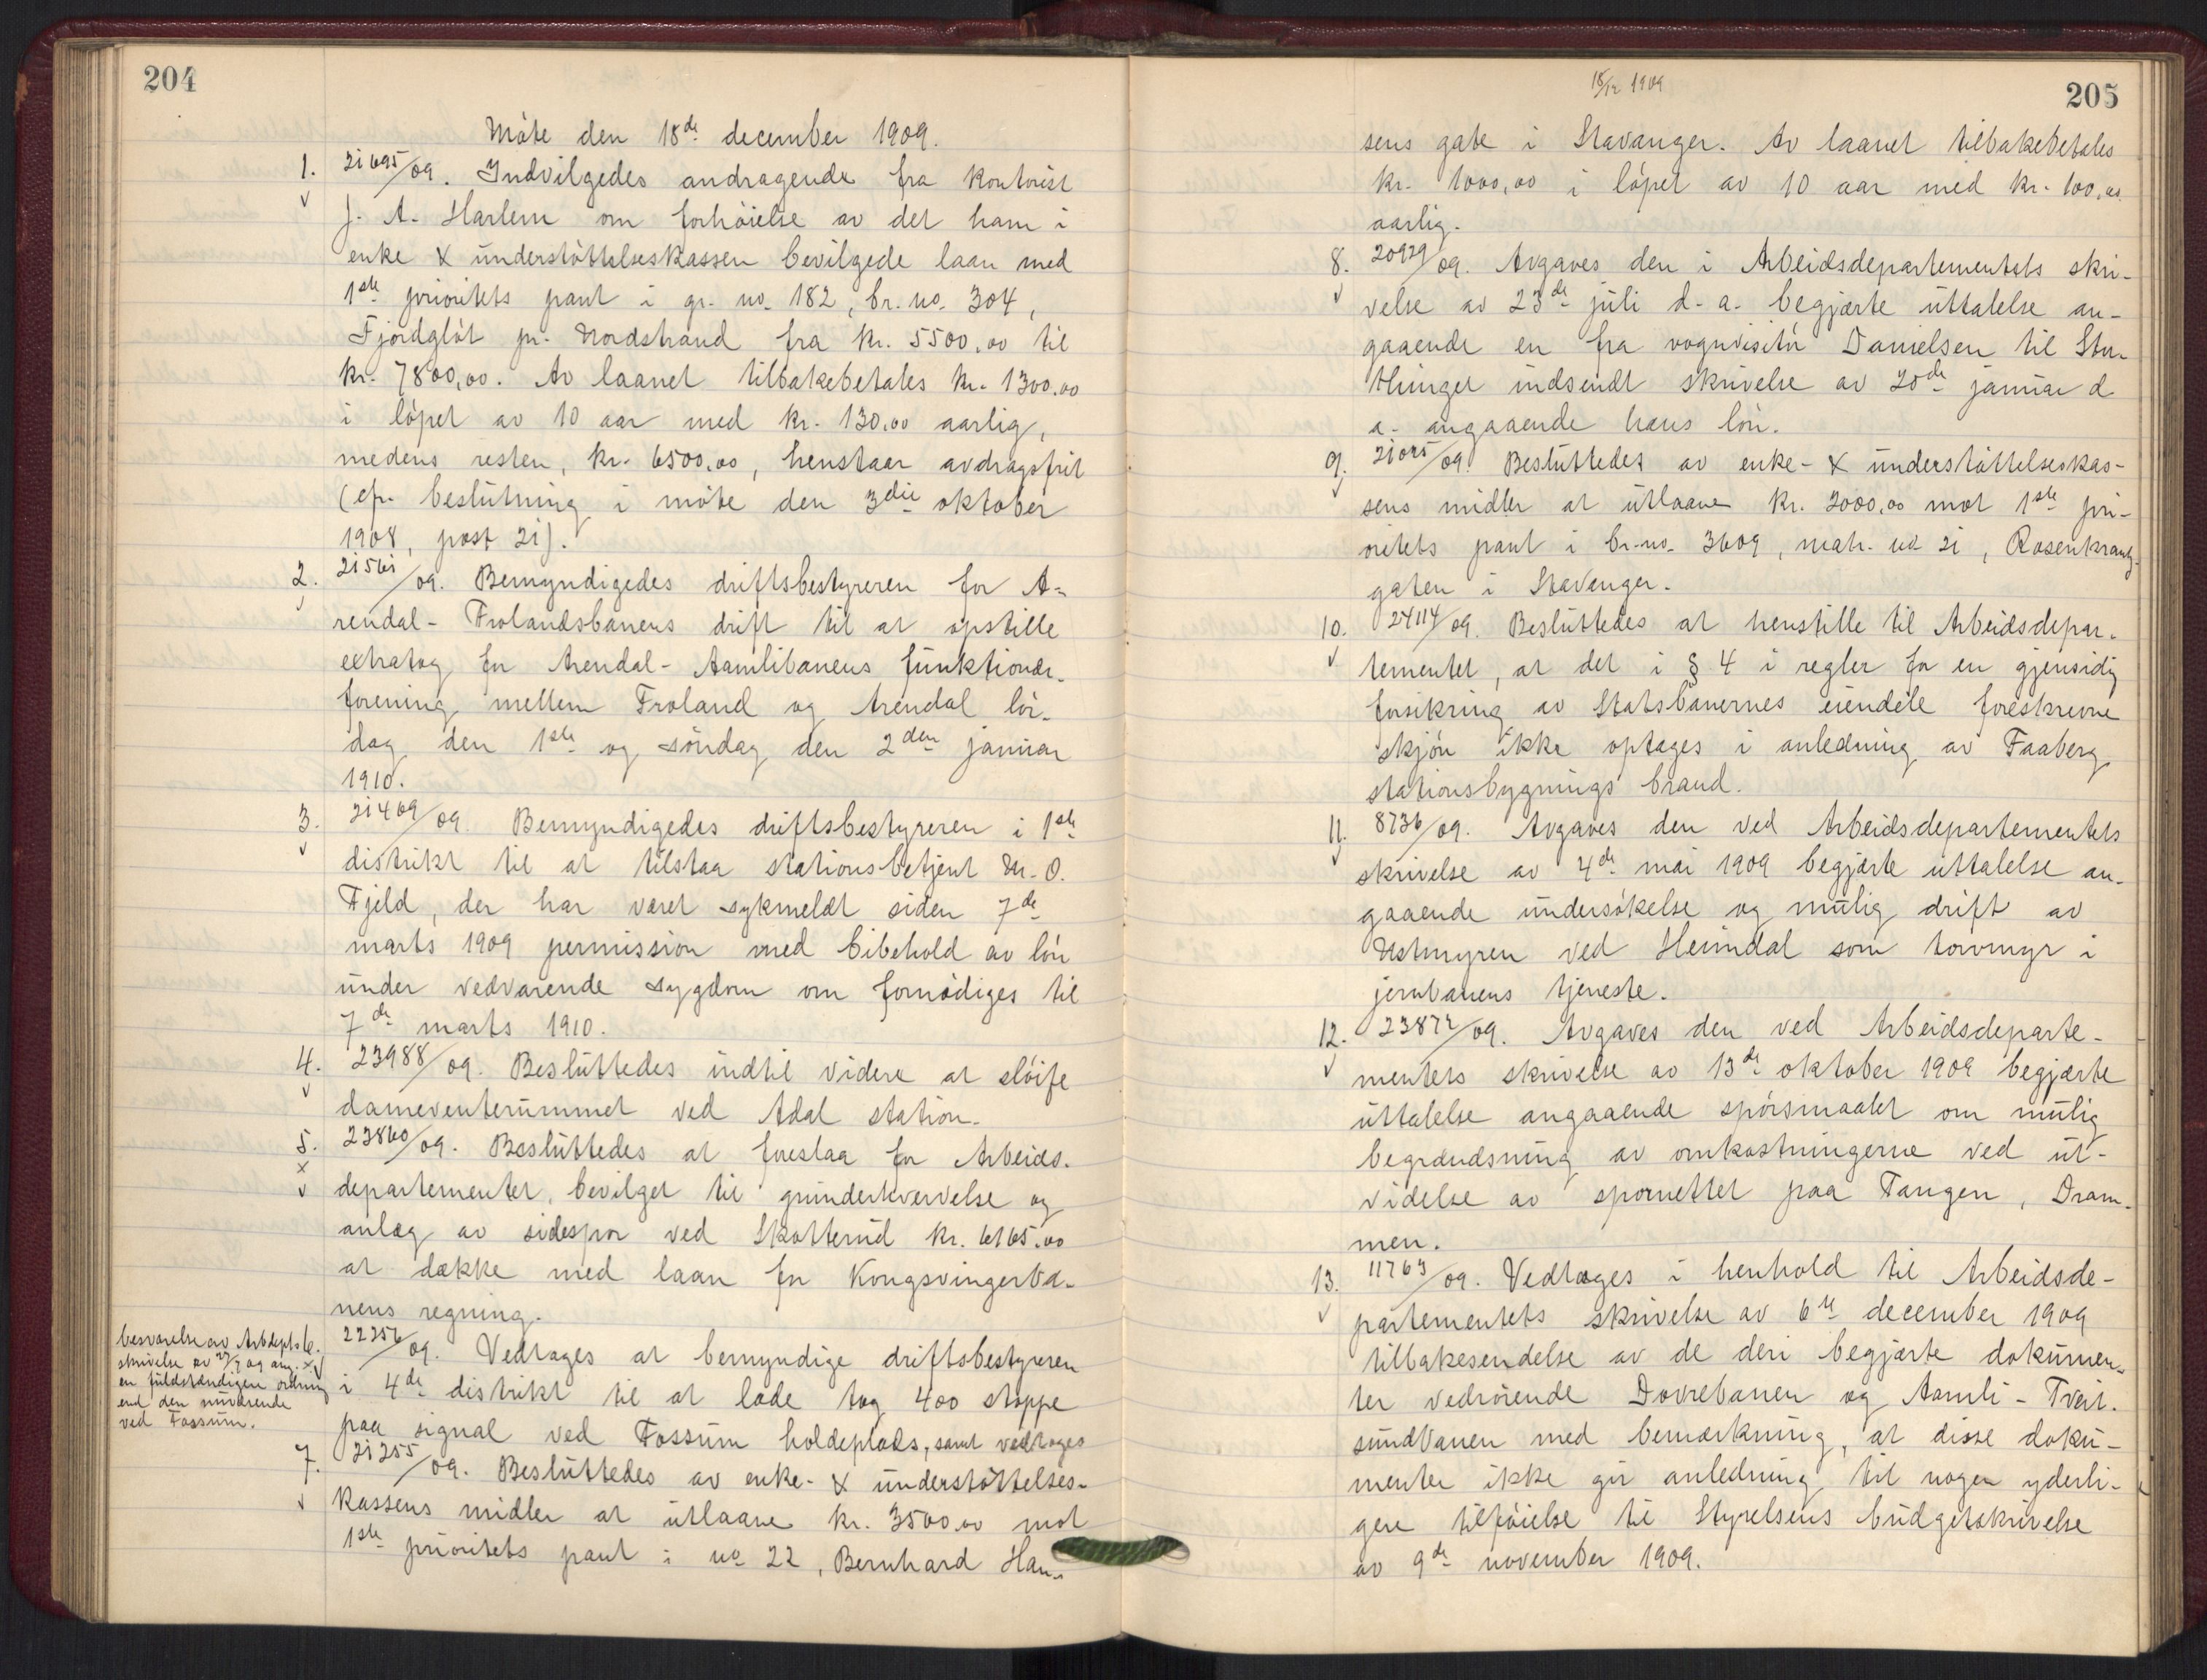 204
Møte den 18de december 1909.
1. 21695/09. Indvilgedes andragende fra kontorist
J. A. Harlem om forhøielse av det ham i
enke & understøttelseskassen bevilgede laan med
1ste prioritets pant i gr. no. 182, br. no. 304,
Fjordgløt pr. Nordstrand fra kr. 5500,00 til
kr. 7800,00. Av laanet tilbakebetales kr. 1300.00
i løpet av 10 aar med kr. 130,00 aarlig,
medens resten, kr. 6500,00, henstaar avdragsfrit
(cfr. beslutning i møte den 3die oktober
1908, post 21).
2. 21561/09. Bemyndigedes driftsbestyreren for A-
rendal - Frolandsbanens drift til at opstille
extratog for Arendal - Aamlibanens funktionær-
forening mellem Froland og Arendal lør-
dag den 1ste og søndag den 2den januar
1910.
3. 21469/09. Bemyndigedes driftsbestyreren i 1ste
distrikt til at tilstaa stationsbetjent M. O.
Fjeld, der har været sykmeldt siden 7de
marts 1909 permission med bibehold av løn
under vedvarende sygdom om fornødiges til
7de marts 1910.
4. 23988/09. Besluttedes indtil videre at sløife
dameventerummet ved Adal station.
5. 23860/09. Besluttedes at foreslaa for Arbeids-
departementet, bevilget til grunderhvervelse og
anlæg av sidespor ved Skotterud kr. 6165.00
at dække med laan for Kongsvingerba-
nens regning.
6. 22256/09. Vedtages at bemyndige driftsbestyreren
i 4de distrikt til at lade tog 400 stoppe
paa signal ved Fossum holdeplads, samt vedtages
besvarelse av Arbdepts
skrivelse av 27/7 09 ang.
en fuldstændigere ordning
end den nuværende
ved Fossum.
7. 21255/09. Besluttedes av enke- & understøttelses-
kassens midler at utlaane kr. 3500.00 mot
1ste prioritets pant i no 22, Bernhard Han-
18/12 1909
205
sens gate i Stavanger. Av laanet tilbakebetales
kr. 1000,00 i løpet av 10 aar med kr. 100,00
aarlig.
8. 20929/09. Avgaves den i Arbeidsdepartementets skri-
velse av 23de juli d. a. begjærte uttalelse an-
gaaende en fra vognvisitør Danielsen til Stor-
thinget indsendt skrivelse av 20de januar d.
a. angaaende hans løn.
9. 21025/09. Besluttedes av enke- & understøttelseskas-
sens midler at utlaane kr. 2000,00 mot 1ste pri-
oritets pant i br. no. 3609, matr. no 21, Rosenkrantz
gaten i Stavanger.
10. 24114/09. Besluttedes at henstille til Arbeidsdepar-
tementet, at det i § 4 i regler for en gjensidig
forsikring av Statsbanernes eiendele foreskrevne
skjøn ikke optages i anledning av Faaberg
stationsbygnings brand.
11. 8736/09. Avgaves den ved Arbeidsdepartementets
skrivelse av 4de mai 1909 begjærte uttalelse an-
gaaende undersøkelse og mulig drift av
Ustmyren ved Heimdal som torvmyr i
jernbanens tjeneste.
12. 23872/09. Avgaves den ved Arbeidsdeparte-
mentets skrivelse av 13de oktober 1909 begjærte
uttalelse angaaende spørsmaalet om mulig
begrændsning av omkostningerne ved ut-
videlse av spornettet paa Tangen, Dram-
men.
13. 11763/09. Vedtages i henhold til Arbeidsde-
partementets skrivelse av 6te december 1909
tilbakesendelse av de deri begjærte dokumen-
ter vedrørende Dovrebanen og Aamli - Tveit-
sundbanen med bemærkning, at disse doku-
menter ikke gir anledning til nogen yderli-
gere tilføielse til Styrelsens budgetskrivelse
av 9de november 1909.